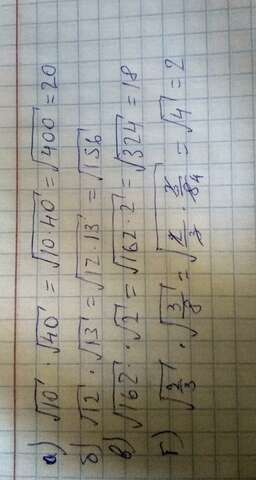 а) √10 · √40 = √10·40 = √400 = 20
б) √12 · √13 = √12·13 = √156
в) √162 · √2 = √162·2 = √324 = 18
г) √2/3 · √3/8 = √2/3 · 3/8 4 = √4 = 2